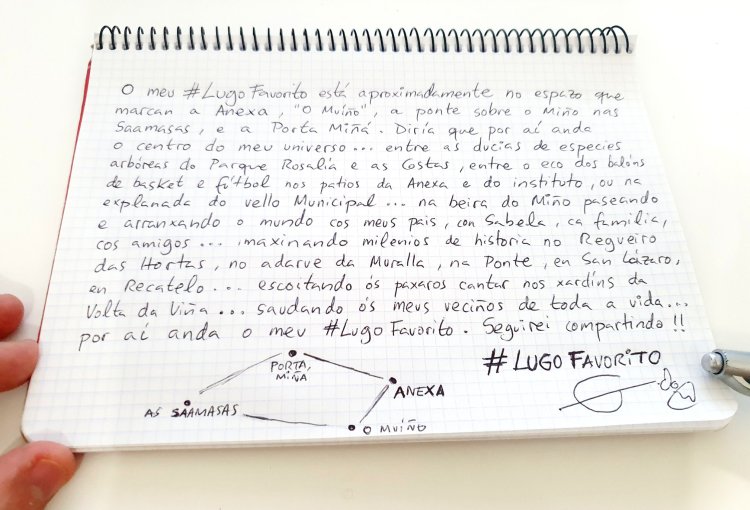 O meu #Lugo Favorito está aproximadamente no espazo que
marcan a Anexa, "O Muíño", a ponte sobre o Miño nas
Saamasas, e a Porta Miñá. Diría que por aí anda
o centro do meu universo... entre as ducias de especies
arbóreas do Parque Rosalía e as Costas, entre o eco dos balóns
de basket e fútbol nos patios da Anexa e do instituto, ou na
explanada do vello Municipal... na beira do Miño paseando
e arranxando o mundo cos meus pais, con Sabela, ca familia,
cos amigos... imaxinando milenios de historia no Regueiro
das Hortas, no adarve da Muralla, na Ponte, en San Lázaro,
en Recatelo... escoitando ós paxaros cantar nos xardíns da
Volta da Viña... saudando ós meus veciños de toda a vida...
por aí anda o meu #Lugo Favorito. Seguirei compartindo!!
#LUGO FAVORITO
PORTA
MIÑA
ANEXA
AS SAAMASAS
O MUIÑO